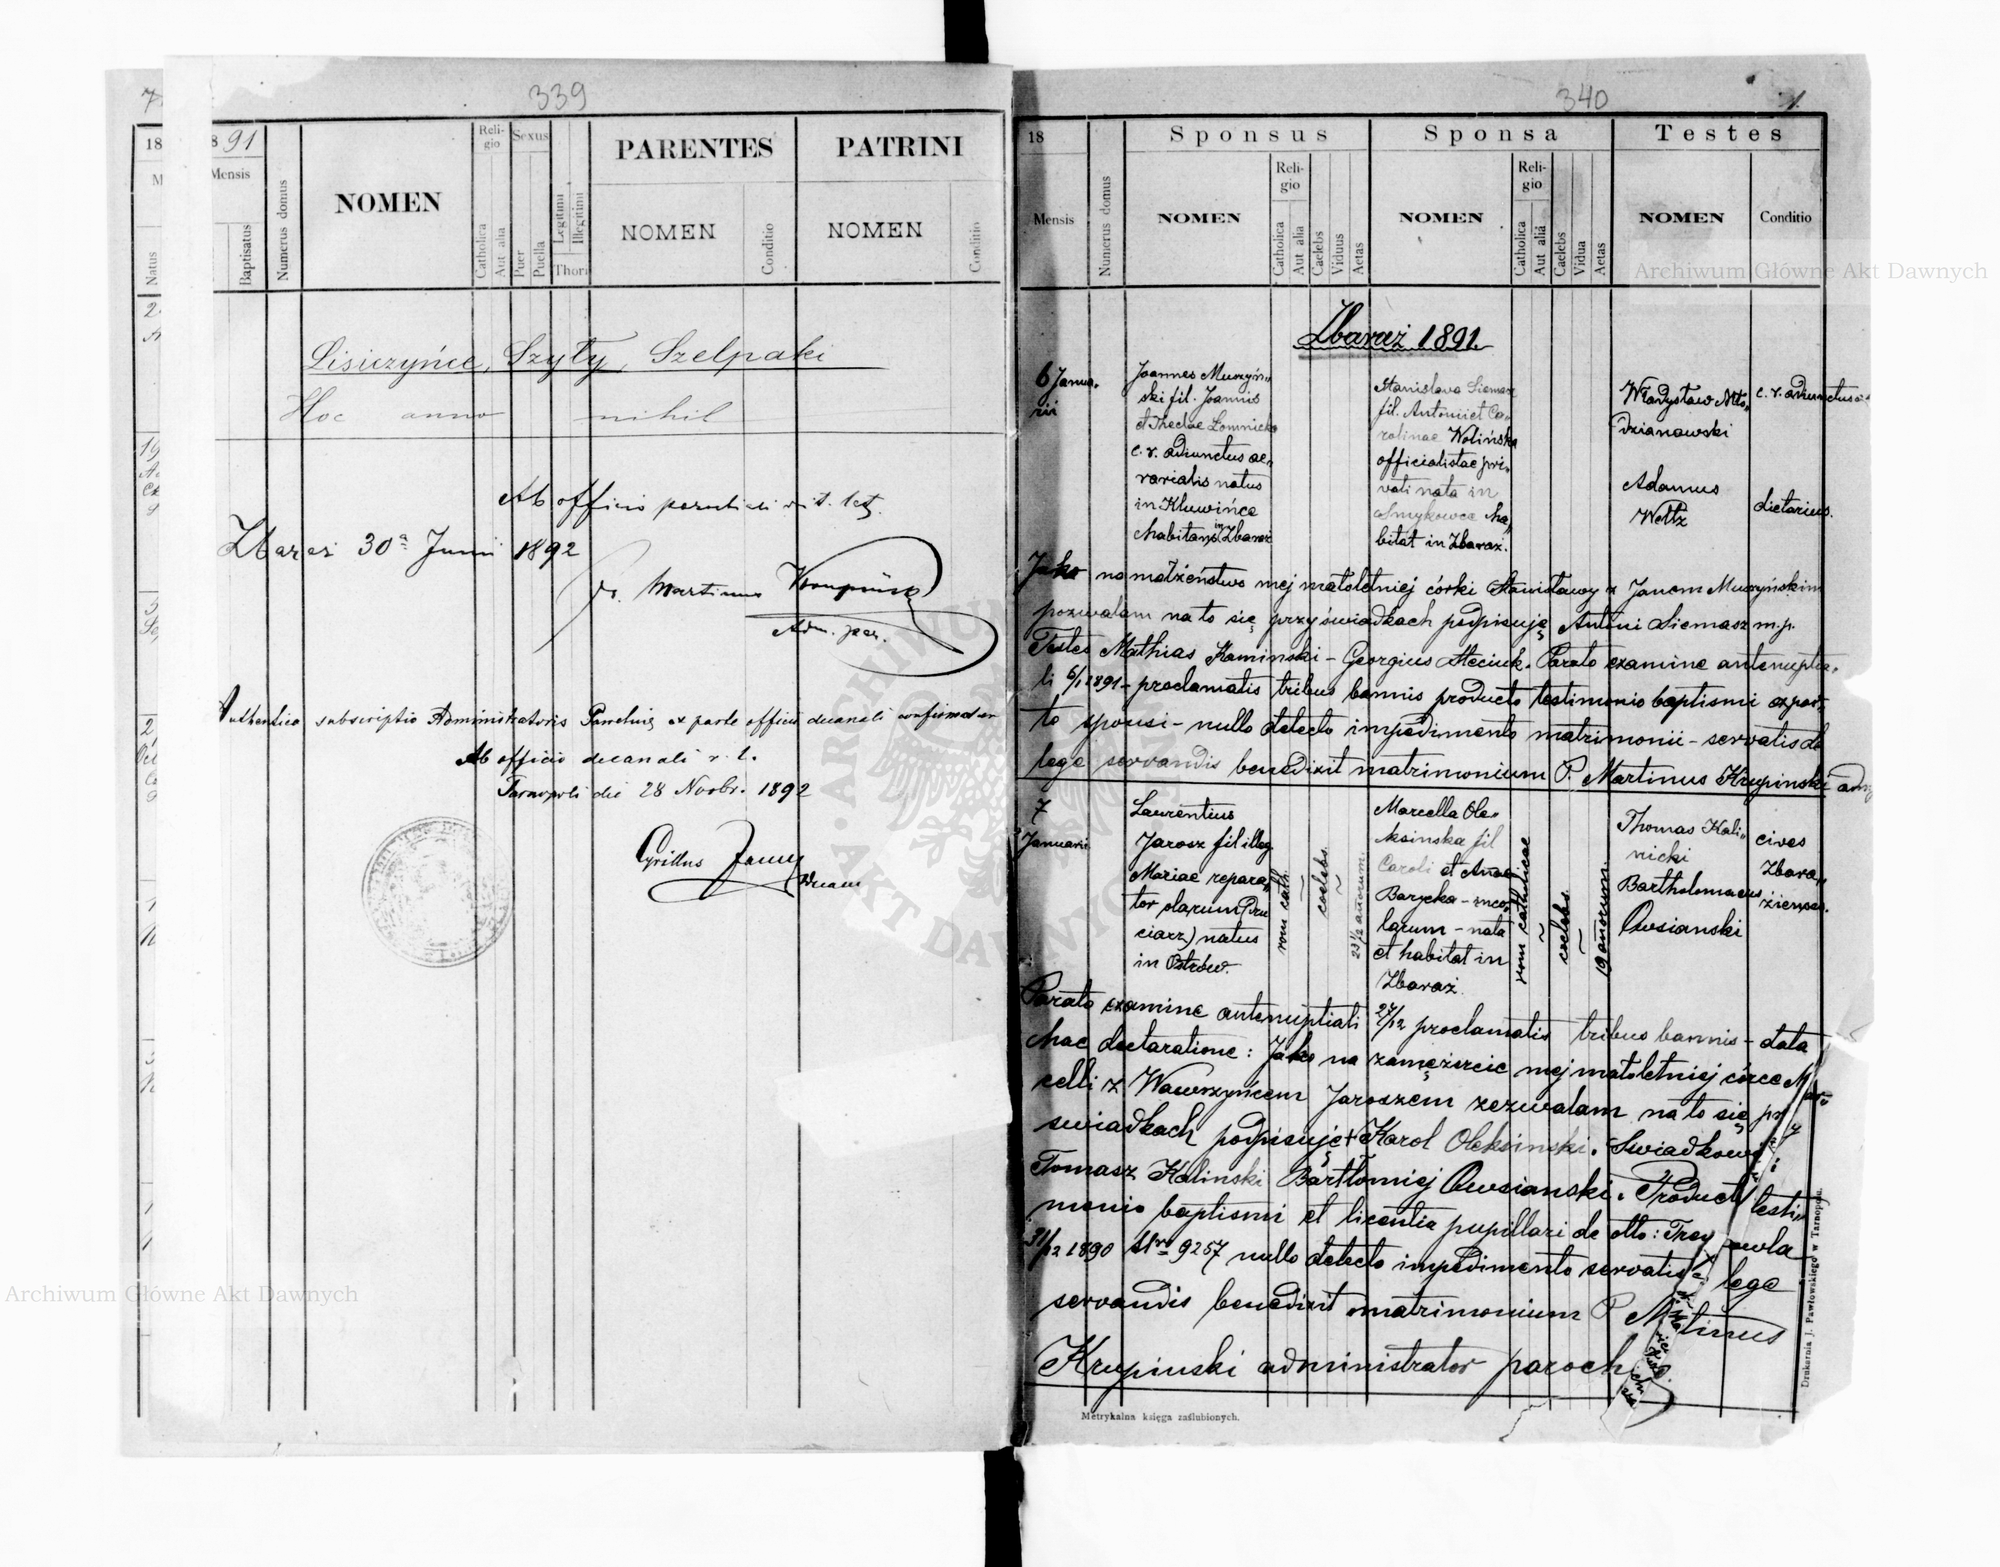 339
1891
Mensis
Natus
Baptisatus
Numerus domus
NOMEN
Religio
Catholica
Aut alia
Sexus
Puer
Puella
Legitimi
Illegitimi
Thori
PARENTES
NOMEN
Conditio
PATRINI
NOMEN
Conditio
Lisiczyńce, Szyły, Szelpaki
Hoc anno nihil
Ab officio parochiali rit. lat.
Zbaraż 30ª Junii 1892
Martinus Krupiński
Adm. par.
Authentica subscriptio Administratoris Parochiae ex parte officii decanali confirmatur
Ab officio decanali r. l.
Tarnopoli die 28 Novbr. 1892
Cyrillus
Decan
340
1.
18
Mensis
Numerus domus
Sponsus
NOMEN
Religio
Catholica
Aut alia
Caelebs
Viduus
Aetas
Sponsa
NOMEN
Religio
Catholica
Aut alia
Caelebs
Vidua
Aetas
Testes
NOMEN
Conditio
Zbaraż 1891.
6 Janua-
rii
Joannes Muszyń-
ski fil. Joannis
et Theclae Łomnicka
c. r. adiunctus ae-
rarialis natus
in Kluwińce
habitans in Zbaraż
Stanislava Siemasz
fil. Antonii et Ca-
rolinae Wolińska
officialistae pri-
vati nata in
Smykowce ha-
bitat in Zbaraż.
Władysław Mło-
dzianowski
c. r. adiunctus
Adamus
Weltz
dietarius.
Jako na małżeństwo mej małoletniej córki Stanisławy z Janem Muszyńskim
pozwalam na to się przy świadkach podpisuję Antoni Siemasz m.p.
Testes Mathias Kaminski – Georgius Steciuk. Parato examine antenuptia-
li 6/1 1891 – proclamatis tribus bannis producto testimonio baptismi ex par-
te sponsi – nullo detecto impedimento matrimonii – servatis de
lege servandis benedixit matrimonium P. Martinus Krupinski adm
7
Januarii
Laurentius
Jarosz fil illeg.
Mariae repara-
tor olarum (Dru
ciarz) natus
in Ostrów.
rom cath.
coelebs.
23 1/2 anorum.
Marcella Ole-
ksinska fil
Caroli et Annae
Barycka – inco-
larum – nata
et habitat in
Zbaraż.
rom catholicae
coelebs.
19 anorum.
Thomas Kali-
nicki
Bartholomaeus
Owsianski
cives
Zbara-
żienses.
Parato examine antenuptiali 27/12 proclamatis tribus bannis – data
hac declaratione: Jako na zamężcie mej małoletniej córce Mar
celli z Wawrzyńcem Jaroszem zezwalam na to się przy
swiadkach podpisuję + Karol Oleksinski. Swiadkowie:
Tomasz Kalinski Bartłomiej Owsianski. Producto testi-
monio baptismi et licentia pupillari de dtto: Trembowla
31/12 1890 Nro 9257 nullo detecto impedimento servatis de lege
servandis benedixit matrimonium P Martinus
Krupinski administrator paroch
Metrykalna księga zaślubionych.
Drukarnia J. Pawłowskiego w Tarnopolu.
Archiwum Główne Akt Dawnych
Archiwum Główne Akt Dawnych
ARCHIWUM GŁÓWNE AKT DAWNYCH